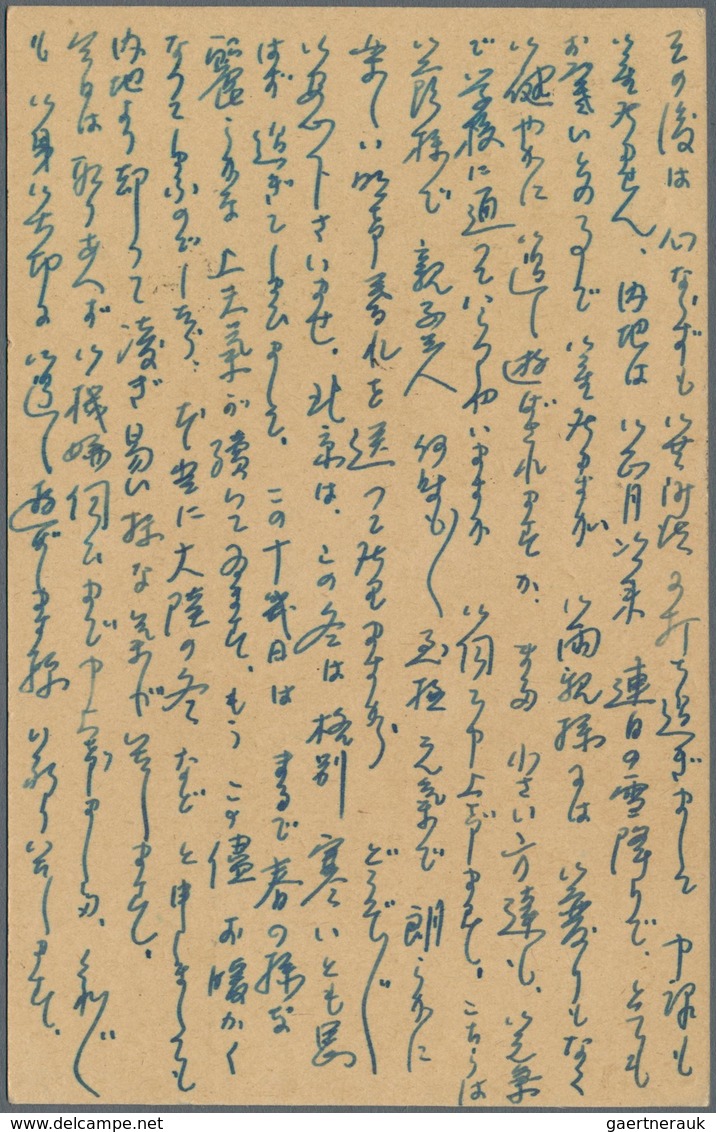 その後は心ならずも御無沙汰に打ち過ぎまして 申訳も
御座いません、内地は 御正月以来 連日の雪降りで、とても
お寒いとの事で御座いますが 御両親様には 御変りもなく
御健やかに御過し遊ばされますか、まだ 小さい方達も、御元気
で学校に通っていらっしゃいますか 御伺ひ申上げます。こちらは
御蔭様で 親子三人 何時も〱 至極元気で 朗らかに
楽しい明け暮れを送って居りますから どうぞ〲
御安心下さいませ。北京は、この冬は格別 寒いとも思
はず 過ぎてしまひまして。この十幾日は まるで春の様な
麗らかな 上天気が続いて居ます。もう この儘 お暖かく
なってしまふのでしょう、本当に大陸の冬など と申しましても
内地より却って 凌ぎ易い様な気が致します。
今日は 取りあへず 御機嫌伺ひまで申上げました、くれ〲
も 御身御大切に御過し遊ばします様 御祈り致します。
gaertnerauk